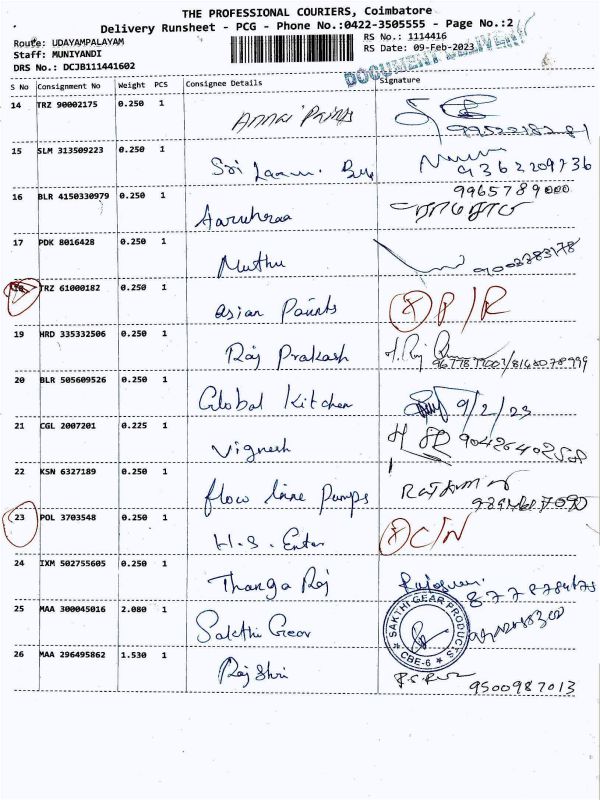 THE PROFESSIONAL COURIERS, Coimbatore
Delivery Runsheet - PCG - Phone No.:0422-3505555 - Page No.:2
Route: UDAYAMPALAYAM
Staff: MUNIYANDI
DRS No.: DCJB111441602
RS No.: 1114416
RS Date: 09-Feb-2023
DOCUMENT DELIVERY
S No Consignment No Weight PCS Consignee Details Signature
14 TRZ 90002175 0.250 1
15 SLM 313509223 0.250 1 Sri 9362209736
16 BLR 4150330979 0.250 1 Aaruhraa 9965789000
17 PDK 8016428 0.250 1 Muthu
18 TRZ 61000182 0.250 1 Asian Paints P/R
19 HRD 335332506 0.250 1 Raj Prakash
20 BLR 505609526 0.250 1 Global Kitchen 9/2/23
21 CGL 2007201 0.225 1 Vignesh
22 KSN 6327189 0.250 1 flow line Pumps
23 POL 3703548 0.250 1 H.S. Enter C/N
24 IXM 502755605 0.250 1 Thanga Raj
25 MAA 300045016 2.080 1 Sakthi Gear SAKTHI GEAR PRODUCTS CBE-6
26 MAA 296495862 1.530 1 Raj Shri 9500987013